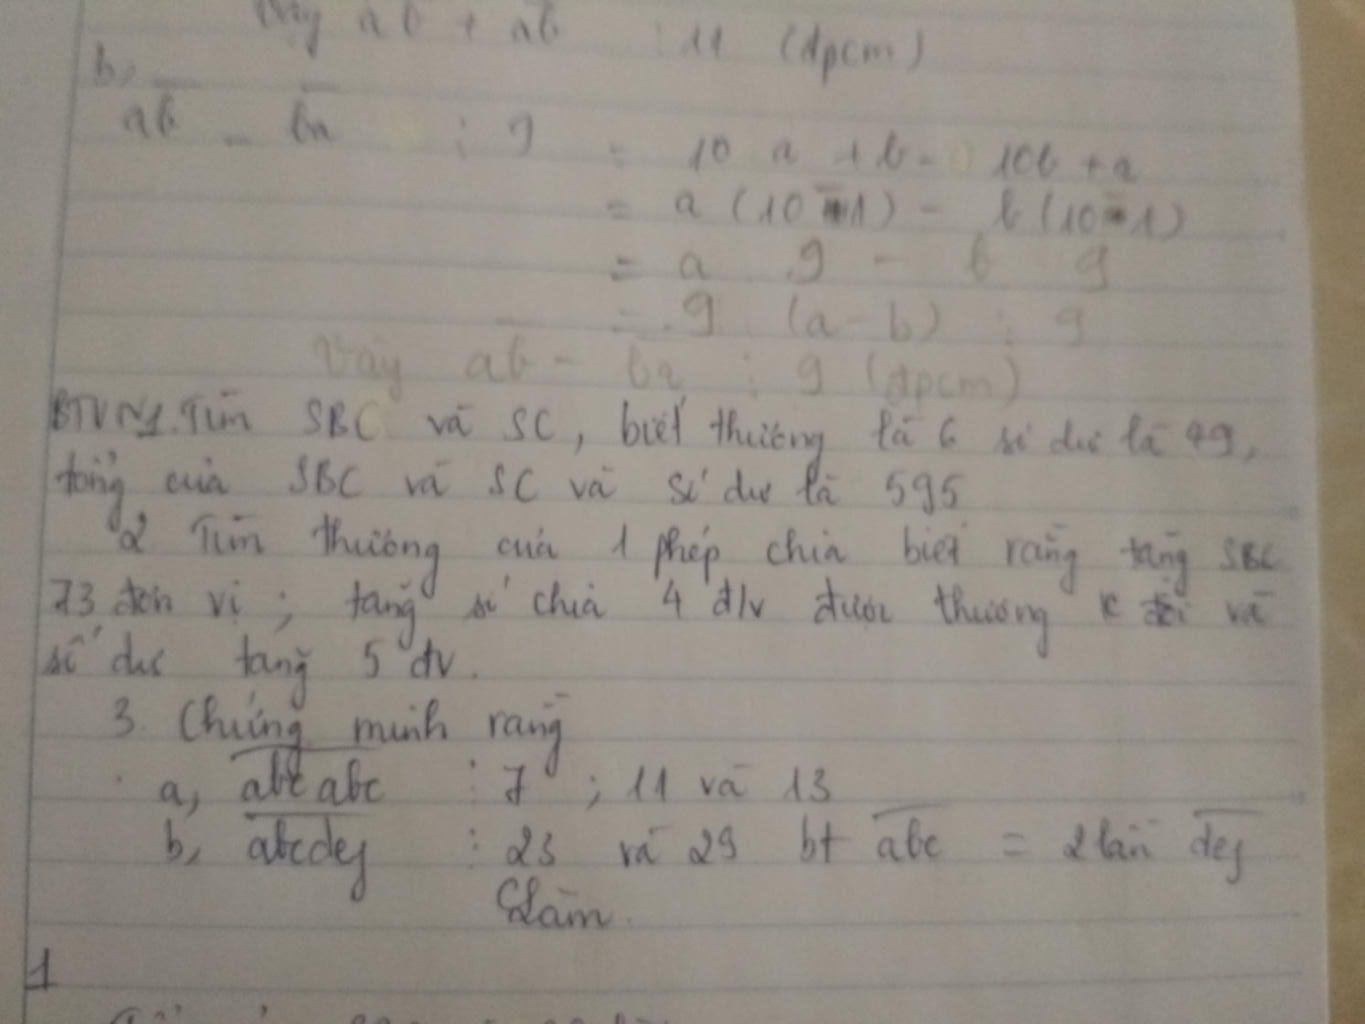 Vậy ab + ab ⋮ 11 (đpcm)
b,
ab - ba ⋮ 9 = 10 a + b - 10b + a
= a (10 - 1) - b (10 - 1)
= a 9 - b 9
= 9 (a - b) ⋮ 9
Vậy ab - ba ⋮ 9 (đpcm)
BTVN 1. Tìm SBC và SC, biết thương là 6 số dư là 49,
tổng của SBC và SC và số dư là 595
2 Tìm thương của 1 phép chia biết rằng tăng SBC
73 đơn vị ; tăng số chia 4 đ/v được thương k đổi và
số dư tăng 5 đv.
3. Chứng minh rằng
a, abc abc ⋮ 7 ; 11 và 13
b, abcdeg ⋮ 23 và 29 bt abc = 2 lần deg
Làm.
1